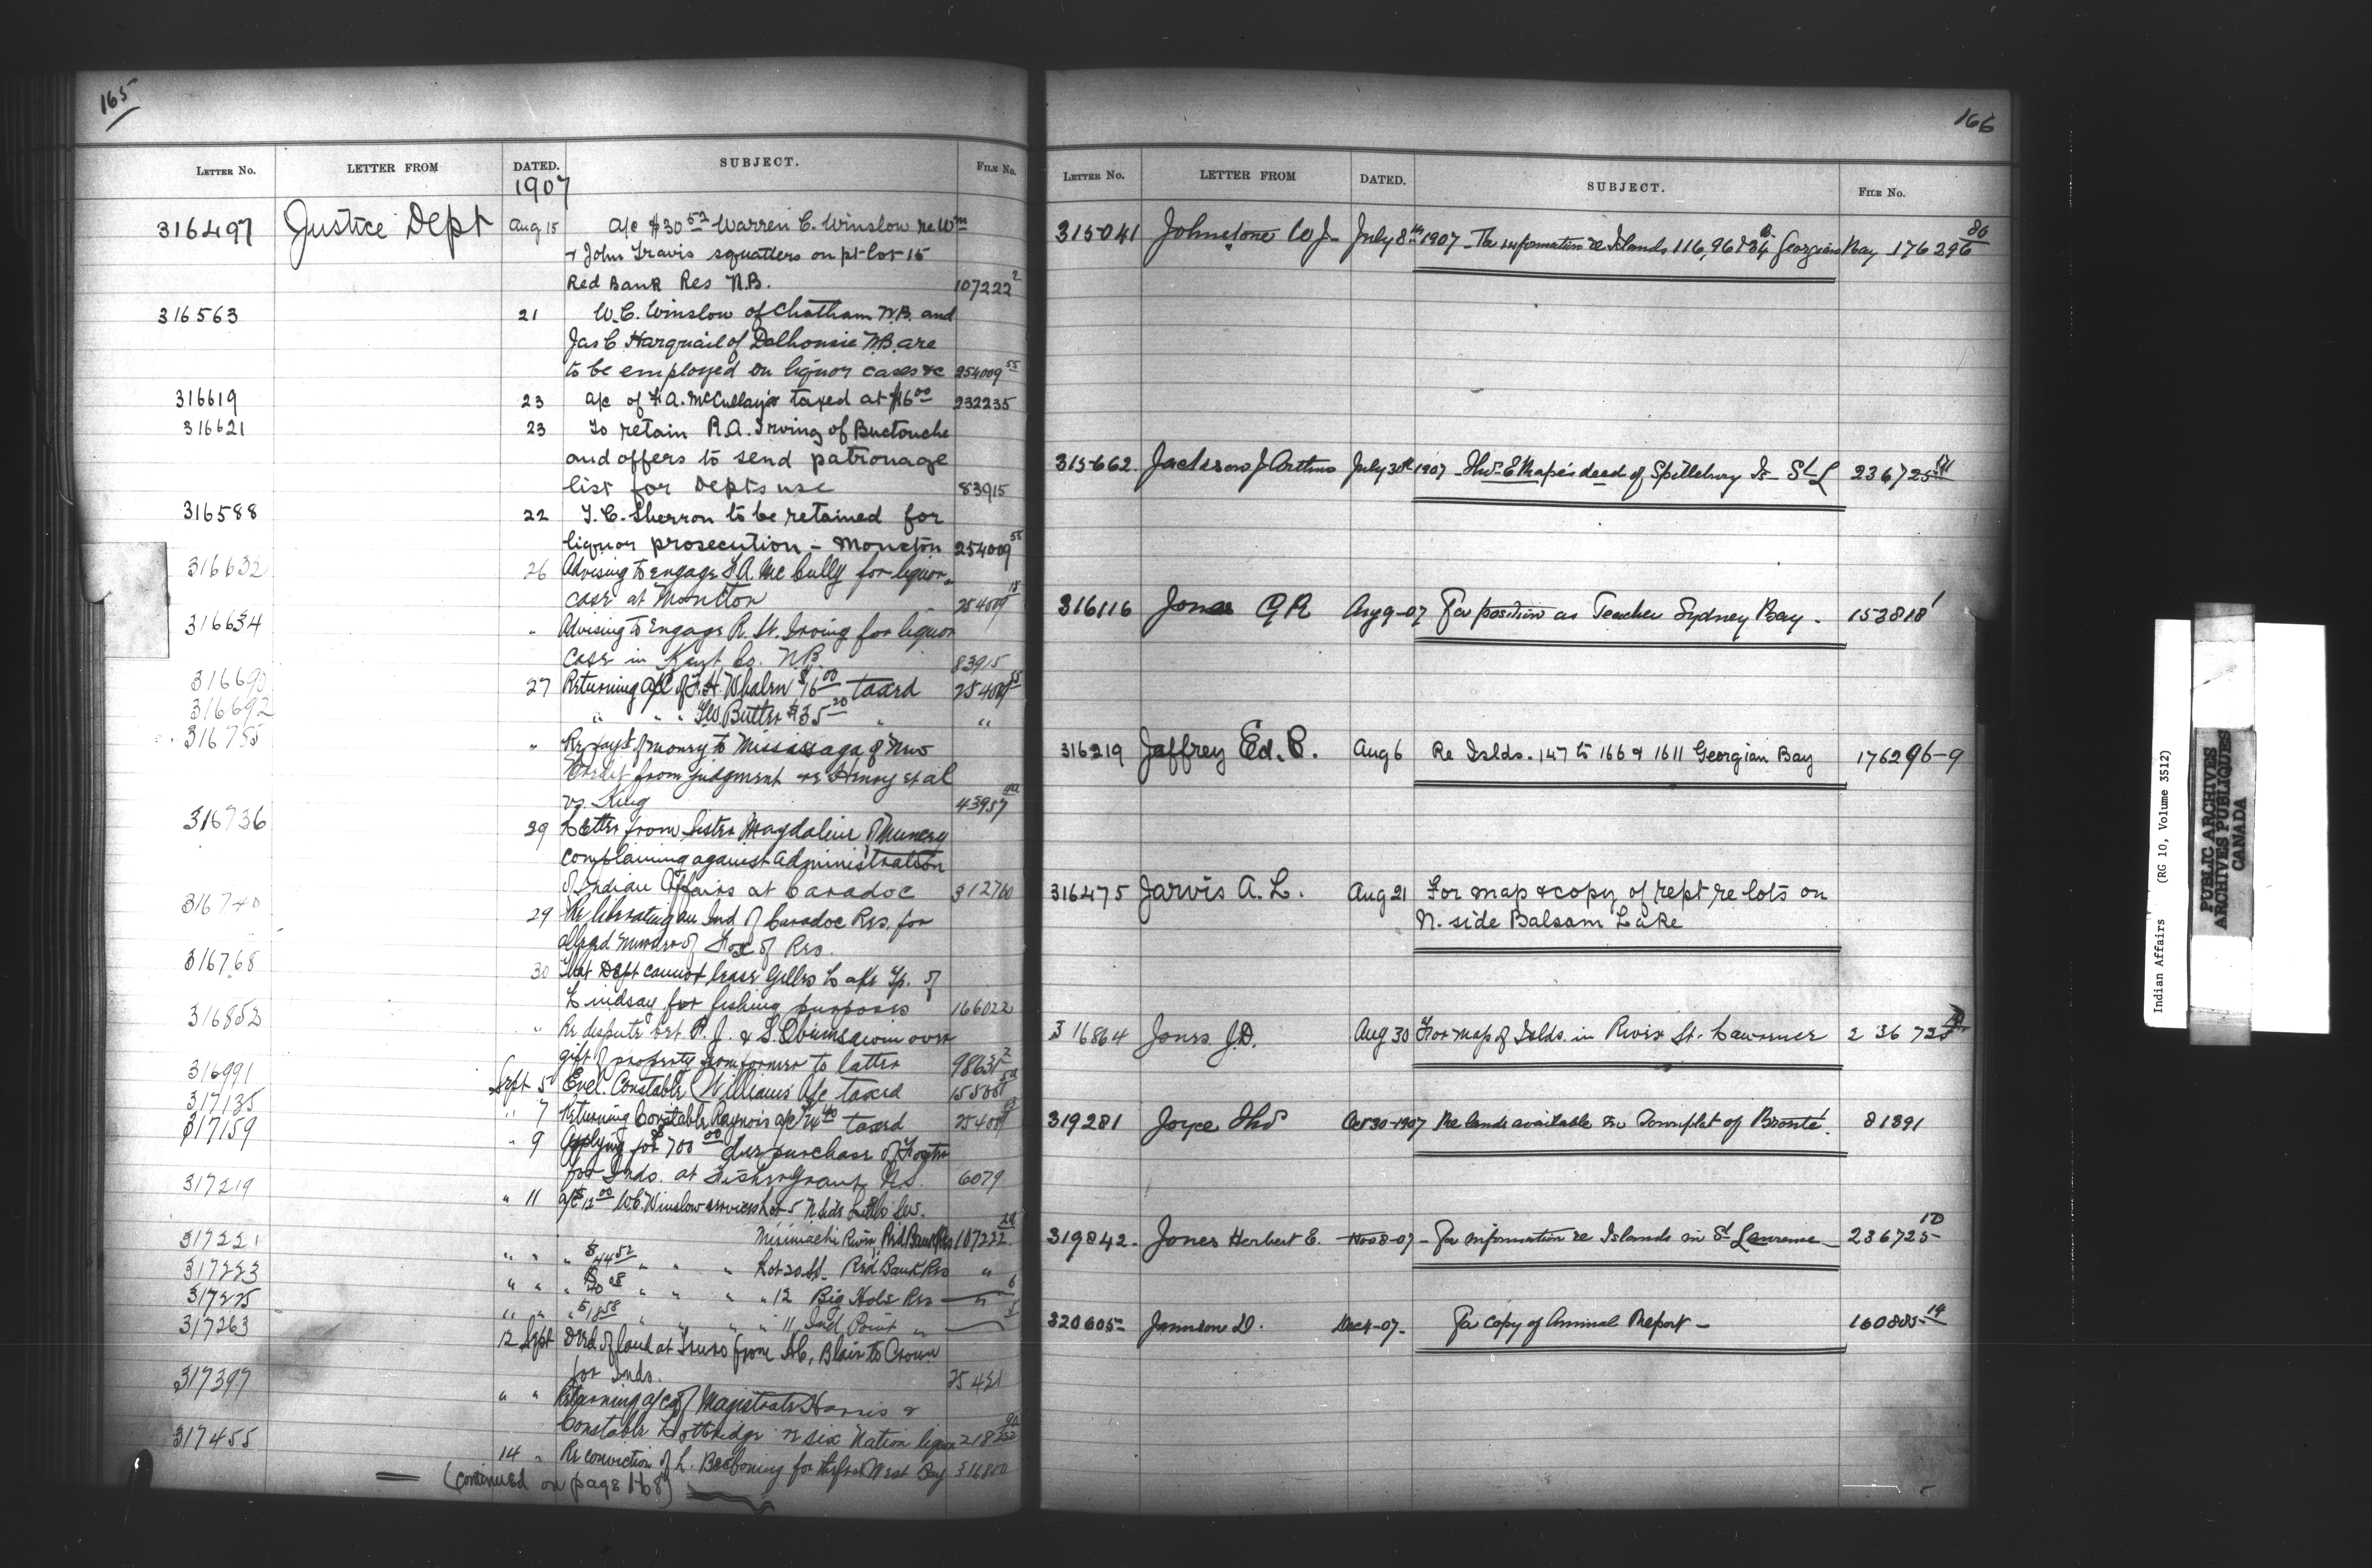 165
LETTER NO. LETTER FROM DATED. SUBJECT. FILE NO.
1907
316497 Justice Dept Aug 15 a/c $30 52 Warren C. Winslow re Wm
+ John Travis squatters on pt lot 15
Red Bank Res N.B. 107222 2
316563 21 W.C. Winslow of Chatham N.B. and
Jas C Harquail of Dalhousie N.B. are
to be employed on liquor cases &c 254009 55
316619 23 a/c of F.A. McCully's taxed at $16 00 232235
316621 23 To retain R.A. Irving of Buctouche
and offers to send patronage
list for Depts use 83915
316588 22 J.C. Sherron to be retained for
liquor prosecution - Moncton 254009 55
316632 26 Advising to engage F.A. McCully for liquor
case at Moncton 254009
316634 " Advising to Engage R. St. Irving for liquor
case in Kent Co. N.B. 83915
316690 27 Returning a/c of F.H. Whalen $16 00 taxed 254009 55
316692 " " " Butter $35 20 " "
316755 " Re payt of money to Mississaga of New
Credit from judgment re Henry et al
vs King 43957
316736 29 Letter from Sister Magdaline of Muncey
complaining against Administration
of Indian Affairs at Caradoc 312760
316740 29 Re liberating an Ind of Caradoc Res. for
alleged murder of Fox of Res.
316768 30 That Dept cannot lease Gillies Lake Tp. of
Lindsay for fishing purposes 166022
316852 " Re dispute bet P. J. & L. Obumsawin over
gift of property from former to latter 98631 2
316991 Sept 5 Evel. Constable Williams' a/c taxed
317135 " 7 Returning Constable a/c taxed 254009
317159 " 9 Applying for $700 00 for purchase of
for Inds. at Fisher Grant N.S. 6079
317219 " 11 a/c $12 00 W.C. Winslow services Lot 5 N side Little Sw.
Mirimachi River, Red Bank Res 107222
317221 " " " $44 52 " " " Lot 20 Red Bank Res "
317223 " " " " " " " 12 Big Hole Res " 6
317225 " " " $18 58 " " " " 11 Ind Point "
317263 12 Sept Deed of land at Truro from Blair to Crown
for Inds. 25421
317397 " " Returning a/cs of Magistrate Harris &
Constable re Six Nation liquor
317455 14 " Re conviction of L. for theft West Bay 316800
(continued on page 168)
166
LETTER NO. LETTER FROM DATED. SUBJECT. FILE NO.
315041 Johnstone W J July 8th 1907 For information re Islands 116, 96 & Georgian Bay 176296 80
315662. Jackson J. Arthur July 30th 1907 deed of Is St L 236725
316116 Jones G R Aug 9-07 For position as Teacher Sydney Bay. 153818 1
316219 Jaffrey Ed. C. Aug 6 Re Islds. 147 to 166 & 1611 Georgian Bay 176296-9
316475 Jarvis A. L. Aug 21 For map & copy of rept re lots on
N. side Balsam Lake
316864 Jones J.D. Aug 30 For map of Islds. in River St. Lawrence 236725
319281 Joyce Thos Oct 30-1907 Re lands available in Townplot of Bronte. 81391
319842. Jones Herbert E. Nov 8-07- For information re Islands in St Lawrence 236725 10
320605 D. Dec 4-07- For copy of Annual Report - 160885 14
Indian Affairs (RG 10, Volume 3512)
PUBLIC ARCHIVES
ARCHIVES PUBLIQUES
CANADA